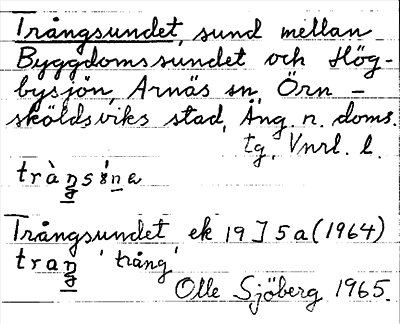 Trångsundet, sund mellan
Byggdomssundet och Hög-
bysjön, Arnäs sn, Örn-
sköldsviks stad, Ång. n. doms.
tg, Vnrl. l.
Trångsundet ek 19J 5a (1964)
'trång'
Olle Sjöberg 1965.